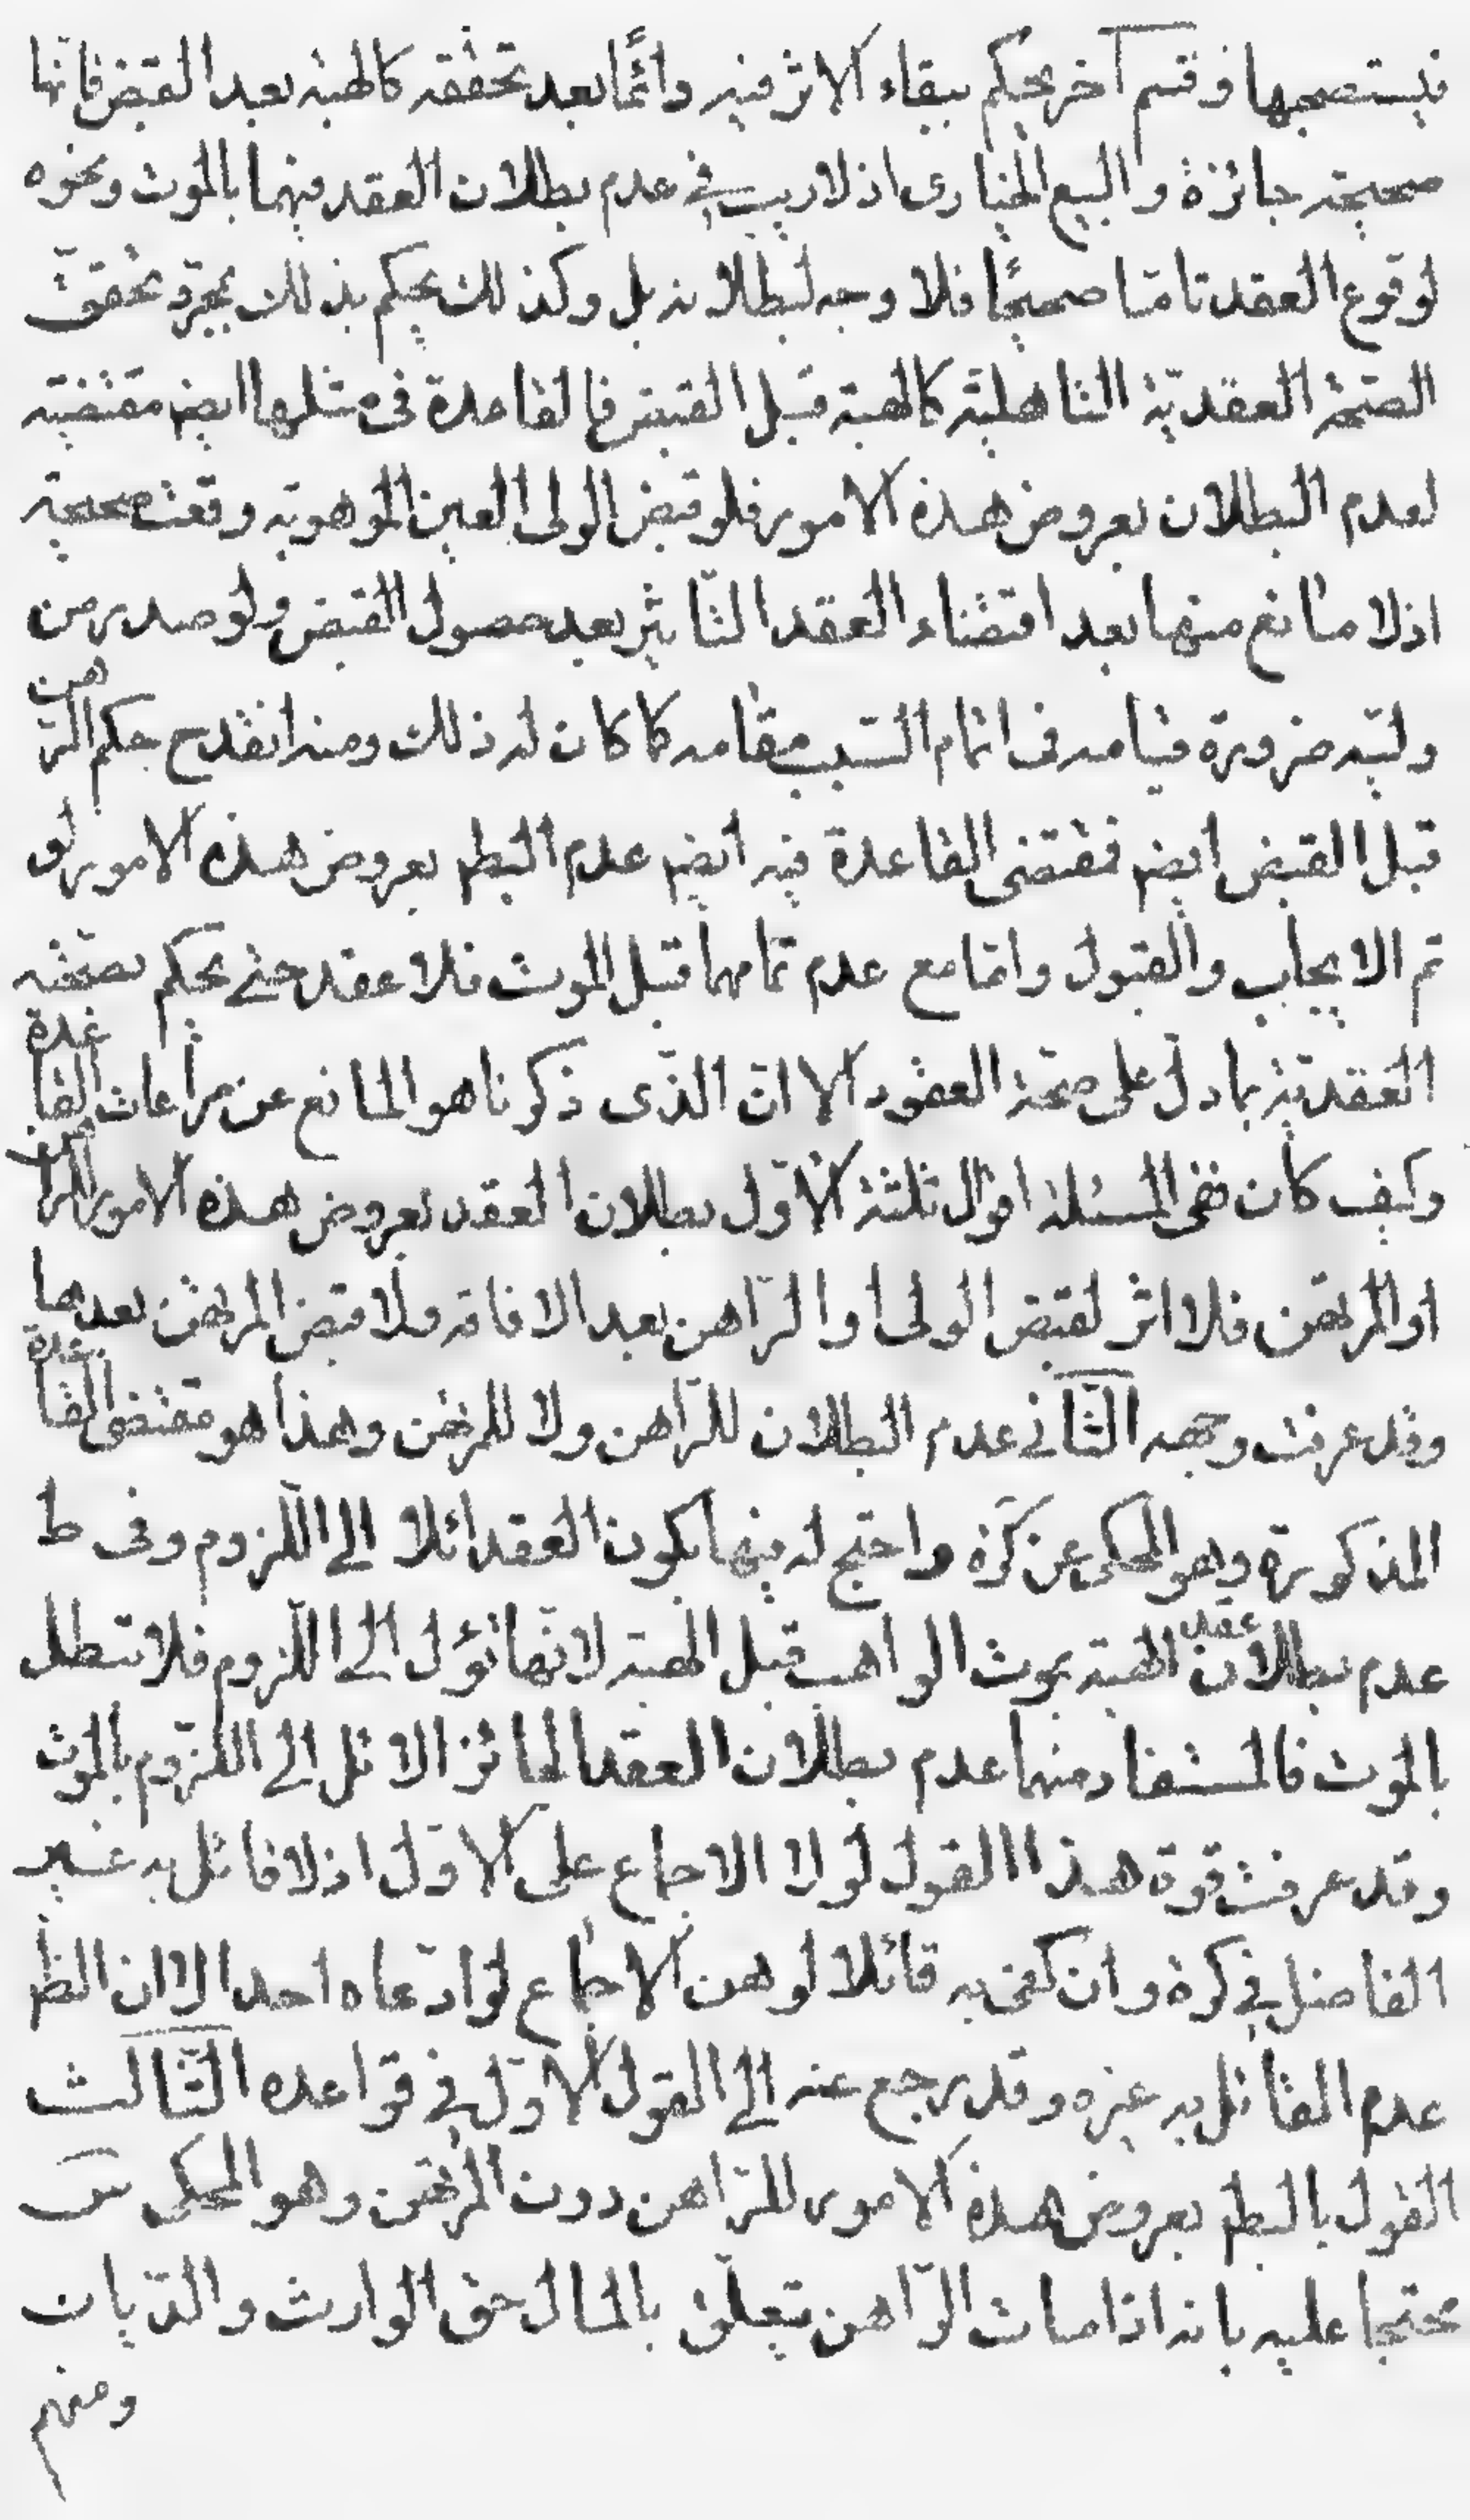 فيستصحبها وقسم آخر يحكم ببقاء الاثر فيه دائمًا بعد تحققه كالهبة بعد القبض فانّها
صحيحة جائزة والبيع الخياري اذ لا ريب في عدم بطلان العقد فيهما بالموت ونحوه
لوقوع العقد تامّا صحيحًا فلا وجه لبطلانه بل وكذلك يحكم بذلك بمجرّد تحقّق
الصّحّة العقديّة التاهليّة كالهبة قبل القبض فالقاعدة فى مثلها ايضا مقتضية
لعدم البطلان بعروض هذه الامور فلو قبض الولى العين الموهوبة وقعت صحيحة
اذ لا مانع منها بعد اقتضاء العقد التّاثير بعد حصول القبض ولو صدر من
وليّه ضرورة قيامه فى اتمام السّبب مقامه كما كان له ذلك ومنه انقدح حكم الرّهن
قبل القبض ايضا فمقتضى القاعدة فيه ايضا عدم البطلا بعروض هذه الامور لو
تم الايجاب والقبول وامّا مع عدم تمامهما قبل الموت فلا عقد حتى يحكم بصحّته
العقديّة بما دلّ على صحّة العقود الا انّ الذّى ذكرنا هو المانع عن مراعات القاعدة
وكيف كان ففى المسئلة اقوال ثلثة الاوّل بطلان العقد بعروض هذه الامور للراهن
او المرتهن فلا اثر لقبض الولى او الرّاهن بعد الافاقة ولا قبض المرتهن بعدها
وقد عرفت وجهه الثّانى عدم البطلان للرّاهن ولا للمرتهن وهذا هو مقتضى القاعدة
المذكورة وهو المحكى عن كره واحتج له فيها بكون العقد ائلا الى اللّزوم وفى ط
عدم بطلان عقد الهبة بموت الواهب قبل الهبة لانّها تؤل الى اللّزوم فلا تبطل
بالموت فالمستفاد منهما عدم بطلان العقد الجائز الائل الى اللّزوم بالموت
وقد عرفت قوة هذا القول لولا الاجماع على الاوّل اذ لا قائل به غير
الفاضل في كره وان كفى به قائلا لوهن الاجماع لو ادّعاه احد الا ان الظ
عدم القائل به غيره وقد رجع عنه الى القول الاوّل في قواعده الثّالث
القول بالبطلا بعروض هذه الامور للرّاهن دون المرتهن وهو المحكى
محتجا عليه بانه اذا مات الرّاهن يتعلّق بالمال حق الوارث والدّيان
ومنهم